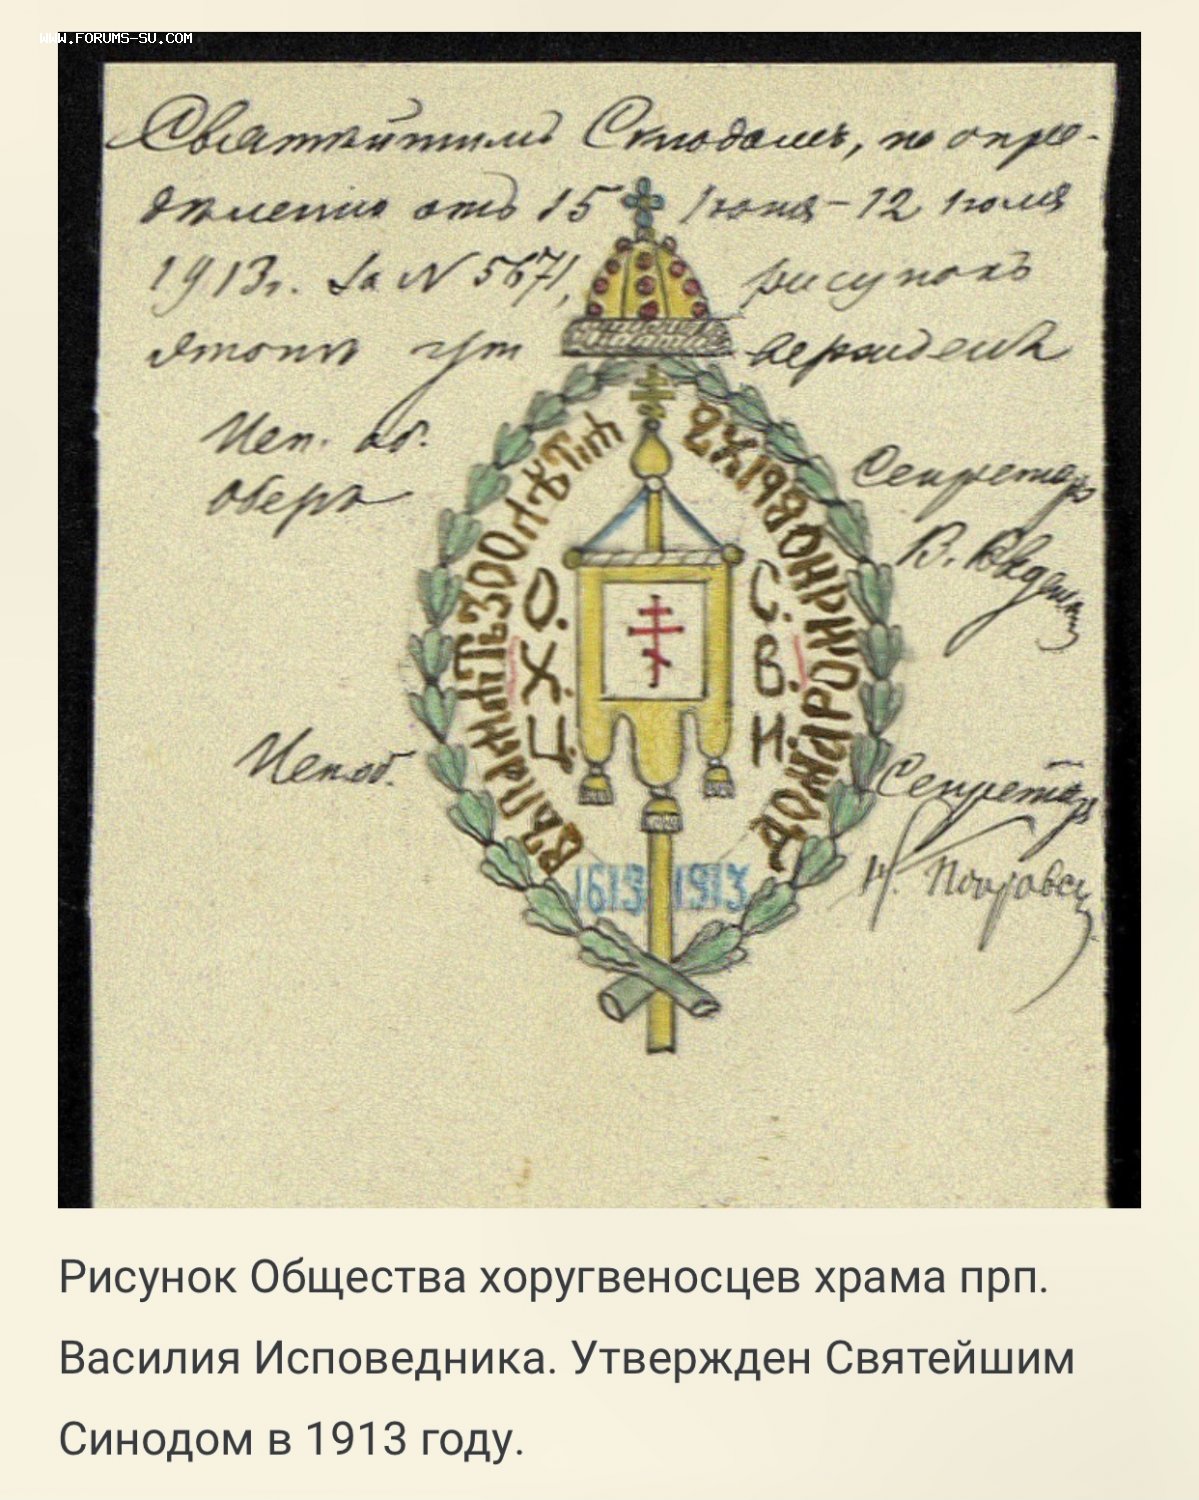 WWW.FORUMS-SU.COM
Святѣйшимъ Сѵнодомъ, по опре-
дѣленію отъ 15 Іюня-12 Іюля
1913г. За N 5671, рисунокъ
этотъ утвержденъ
Исп. об.
Оберъ
Секретарь
В.
Исп. об.
Секретарь
Н.
ВЪ ПАМЯТЬ 300 ЛѢТІЯ
ЦАРСТВОВАНІЯ
ДОМА РОМАНОВЫХЪ
О.
Х.
Ц.
С.
В.
И.
1613 1913
Рисунок Общества хоругвеносцев храма прп.
Василия Исповедника. Утвержден Святейшим
Синодом в 1913 году.